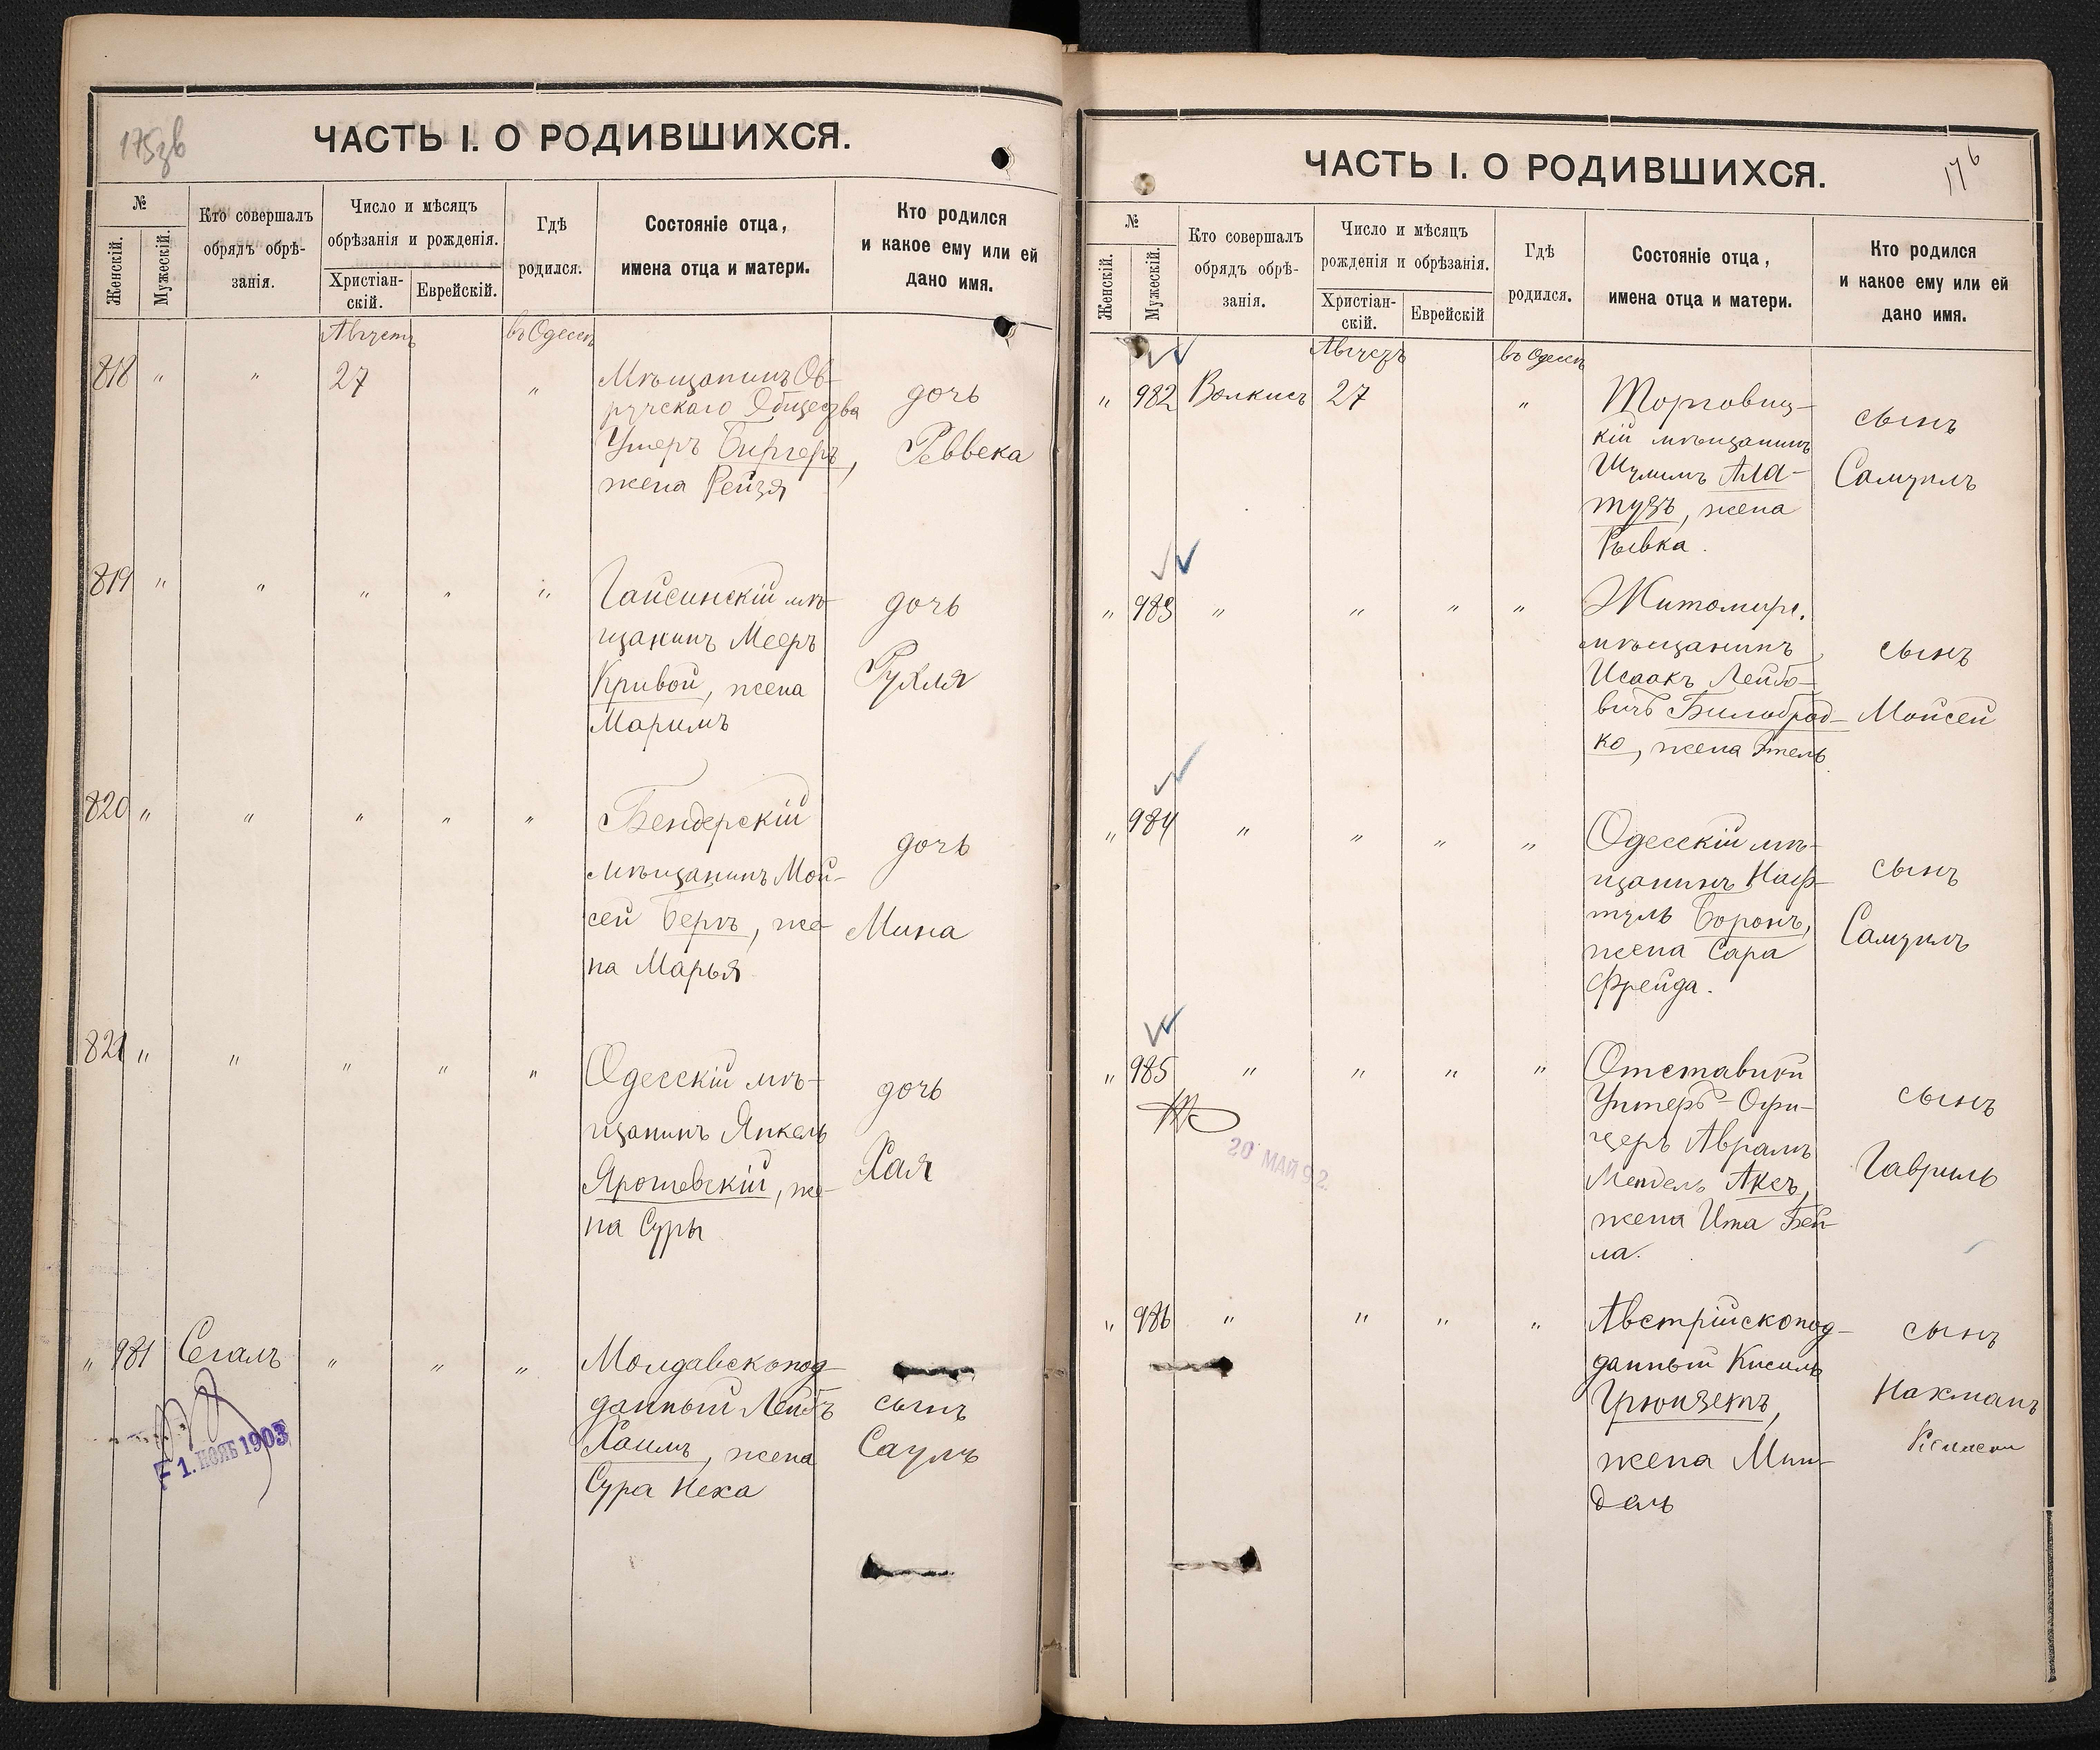 175зв
ЧАСТЬ I. О РОДИВШИХСЯ.
№
Женскій.
Мужескій.
Кто совершалъ
обрядъ обрѣ-
занія.
Число и мѣсяцъ
обрѣзанія и рожденія.
Христіан-
скій.
Еврейскій.
Гдѣ
родился.
Состояніе отца,
имена отца и матери.
Кто родился
и какое ему или ей
дано имя.
Августъ
въ Одессѣ
818 " " 27 "
Мѣщанинъ Ов-
ручскаго Общества
Умеръ Биргеръ,
жена Рейзя
дочь
Реввека
819 " " " " "
Гайсинскій мѣ-
щанинъ Мееръ
Кривой, жена
Маримъ
дочь
Рухля
820 " " " " "
Бендерскій
мѣщанинъ Мой-
сей Бергъ, же-
на Марья
дочь
Мина
821 " " " " "
Одесскій мѣ-
щанинъ Янкель
Ярошевскій, же-
на Суры
дочь
Хая
" 981 Сегалъ " " "
Молдавскопод-
данный Лейбъ
Хаимъ, жена
Сура Неха
сынъ
Саулъ
1. НОЯБ 1903
176
ЧАСТЬ I. О РОДИВШИХСЯ.
№
Женскій.
Мужескій.
Кто совершалъ
обрядъ обрѣ-
занія.
Число и мѣсяцъ
рожденія и обрѣзанія.
Христіан-
скій.
Еврейскій
Гдѣ
родился.
Состояніе отца,
имена отца и матери.
Кто родился
и какое ему или ей
дано имя.
Августъ
въ Одессѣ
" 982 Волкисъ 27 "
Торговиц-
кій мѣщанинъ
Шулимъ Ала-
тузъ, жена
Рывка.
сынъ
Самуилъ
" 983 " " " "
Житомирс.
мѣщанинъ
Исаакъ Лейбо-
вичъ Билобрад-
ко, жена Этель
сынъ
Мойсей
" 984 " " " "
Одесскій мѣ-
щанинъ Наф-
туль Боронъ,
жена Сара
Фрейда.
сынъ
Самуилъ
" 985 " " " "
Отставной
Унтеръ-Офи-
церъ Аврамъ
Мендель Аксъ,
жена Ита Бей-
ла.
сынъ
Гавриль
20 МАЙ 92.
" 986 " " " "
Австрійскопод-
данный Кисиль
Грюнзетъ,
жена Мин-
дель
сынъ
Нахманъ